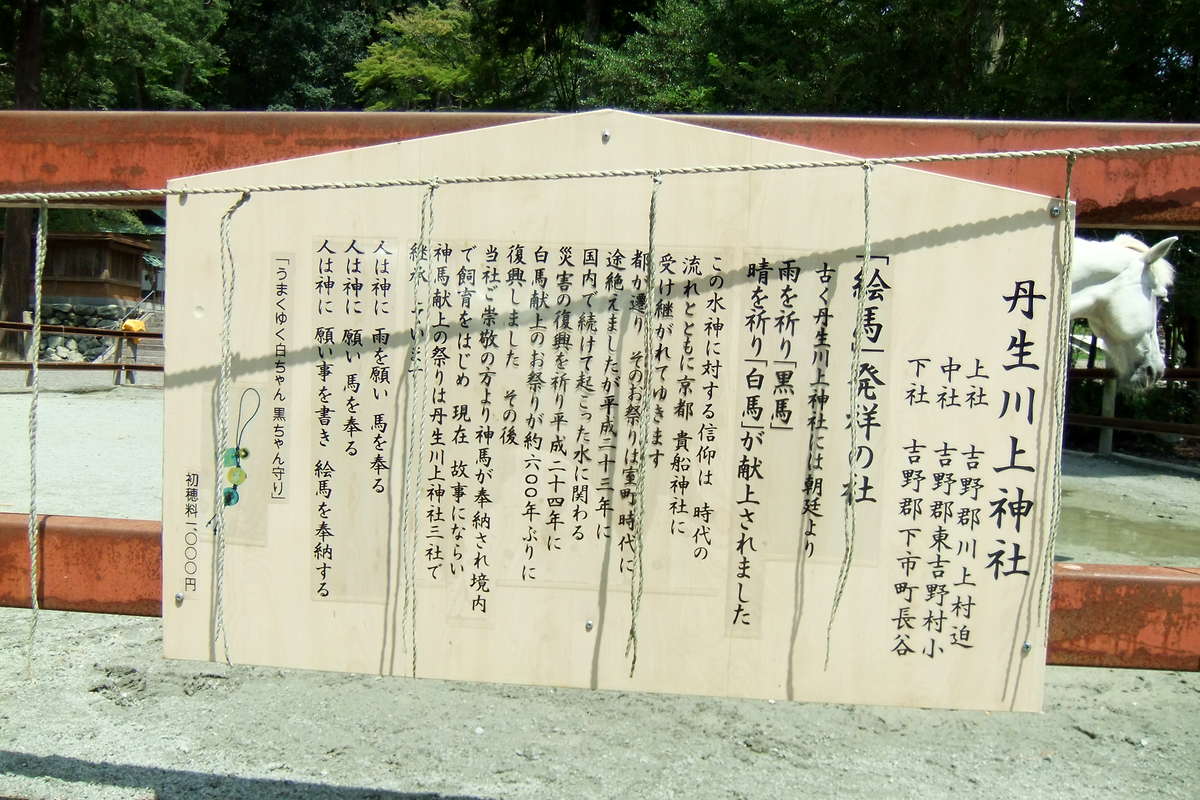 丹生川上神社
上社 吉野郡川上村迫
中社 吉野郡東吉野村小
下社 吉野郡下市町長谷
「絵馬」発祥の社
古く丹生川上神社には朝廷より
雨を祈り「黒馬」
晴を祈り「白馬」が献上されました
この水神に対する信仰は 時代の
流れとともに京都 貴船神社に
受け継がれてゆきます
都が遷り そのお祭りは室町時代に
途絶えましたが平成二十三年に
国内で続けて起こった水に関わる
災害の復興を祈り平成二十四年に
白馬献上のお祭りが約六〇〇年ぶりに
復興しました その後
当社ご崇敬の方より神馬が奉納され境内
で飼育をはじめ 現在 故事にならい
神馬献上の祭りは丹生川上神社三社で
継承しています
人は神に 雨を願い 馬を奉る
人は神に 願い 馬を奉る
人は神に 願い事を書き 絵馬を奉納する
「うまくゆく白ちゃん 黒ちゃん守り」
初穂料一、〇〇〇円